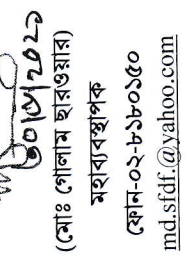 ৩০/৮/২০২১
(মোঃ গোলাম ছারওয়ার)
মহাব্যবস্থাপক
ফোন-০২-৮১৮০১৫০
md.sfdf.@yahoo.com